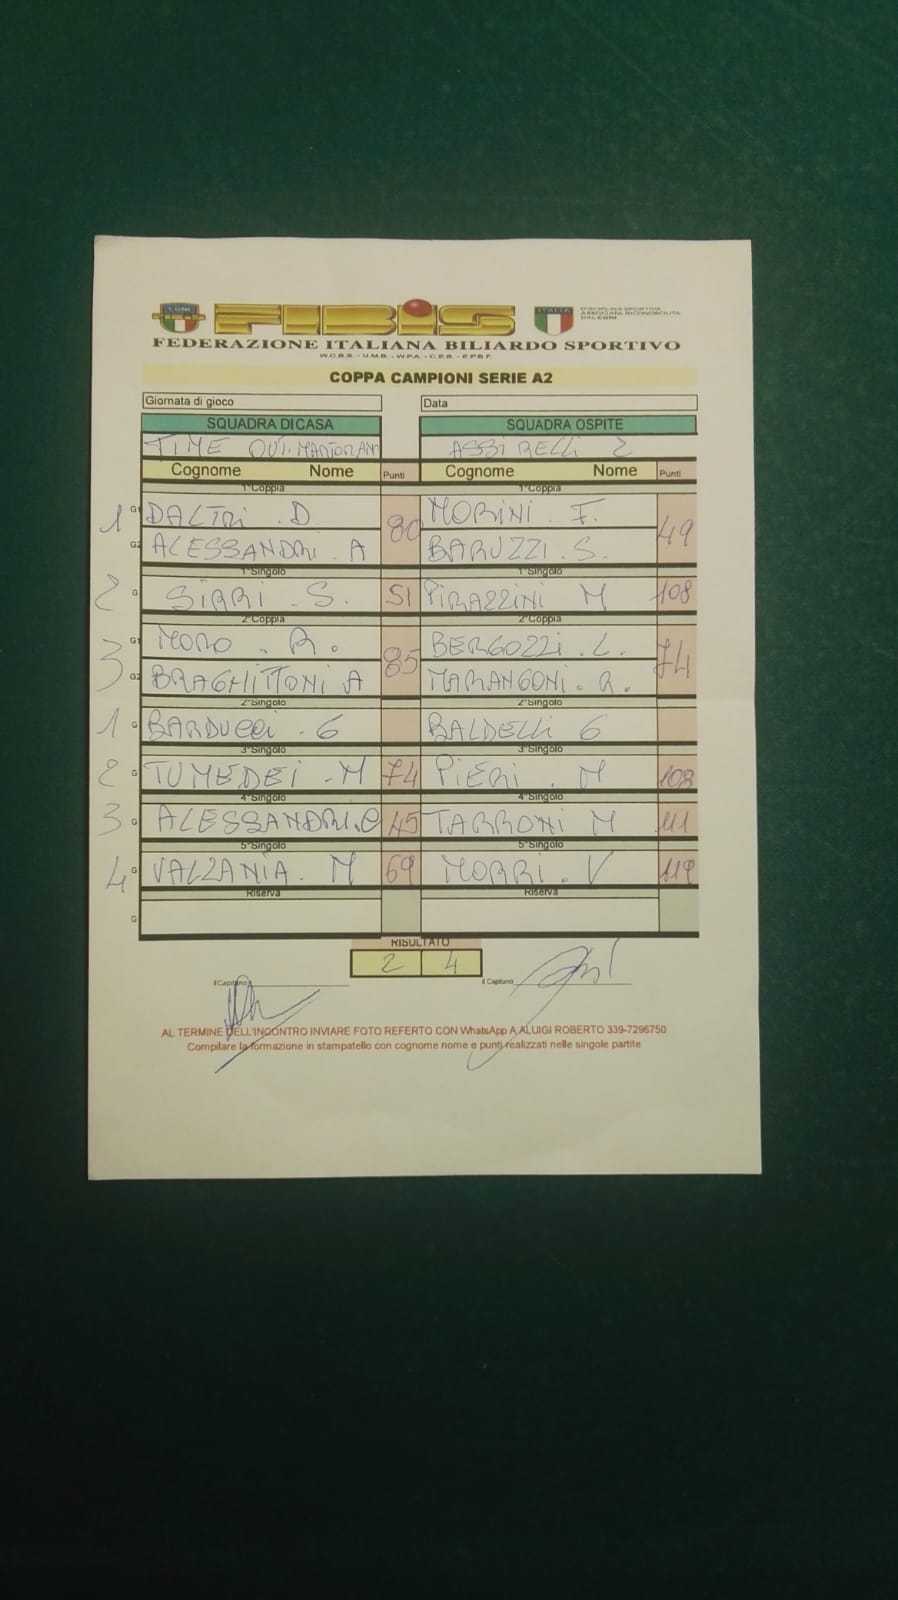 FIBIS
FEDERAZIONE ITALIANA BILIARDO SPORTIVO
W.C.B.S. - U.M.B. - W.P.A. - C.E.B. - E.P.B.F.
COPPA CAMPIONI SERIE A2
Giornata di gioco Data
SQUADRA DI CASA SQUADRA OSPITE
TIME OUT. MARTORANO ASSIRELLI 2
Cognome Nome Punti Cognome Nome Punti
1°Coppia 1°Coppia
1 G1 DALTRI . D 80 MORINI . F. 49
G2 ALESSANDRI . A BARUZZI . S.
1°Singolo 1°Singolo
2 G SIRRI . S. 51 PIRAZZINI M 108
2°Coppia 2°Coppia
3 G1 MORO . R. 85 BERGOZZI . L. 74
G2 BRAGHITTONI A MARANGONI . R.
2°Singolo 2°Singolo
1 G BARDUCCI . G BALDELLI G
3°Singolo 3°Singolo
2 G TUMEDEI . M 74 PIERI . M
4°Singolo 4°Singolo
3 G ALESSANDRI . C 45 TARRONI M 111
5°Singolo 5°Singolo
4 G VALZANIA . M 69 MORRI . V
Riserva Riserva
G
RISULTATO
2 4
il Capitano il Capitano
AL TERMINE DELL'INCONTRO INVIARE FOTO REFERTO CON WhatsApp A ALUIGI ROBERTO 339-7296750
Compilare la formazione in stampatello con cognome nome e punti realizzati nelle singole partite